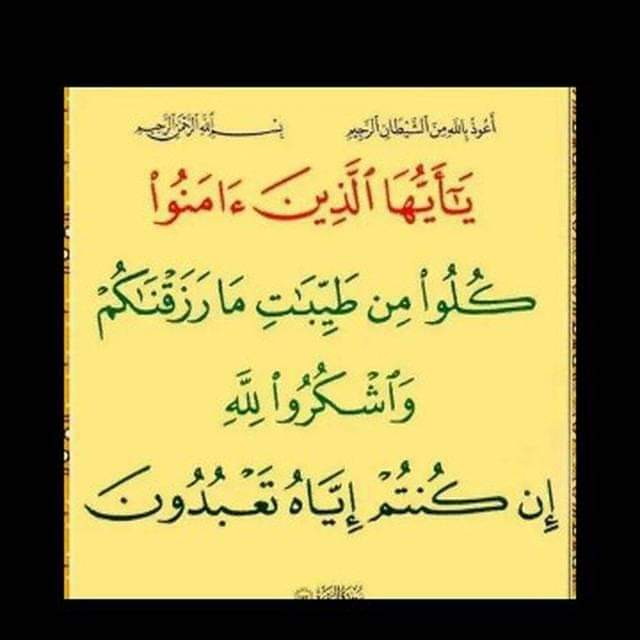 أَعُوذُ بِاللَّهِ مِنَ ٱلشَّيْطَانِ ٱلرَّجِيمِ بِسْمِ ٱللَّهِ ٱلرَّحْمَٰنِ ٱلرَّحِيمِ
يَـٰٓأَيُّهَا ٱلَّذِينَ ءَامَنُوا۟
كُلُوا۟ مِن طَيِّبَـٰتِ مَا رَزَقْنَـٰكُمْ
وَٱشْكُرُوا۟ لِلَّهِ
إِن كُنتُمْ إِيَّاهُ تَعْبُدُونَ